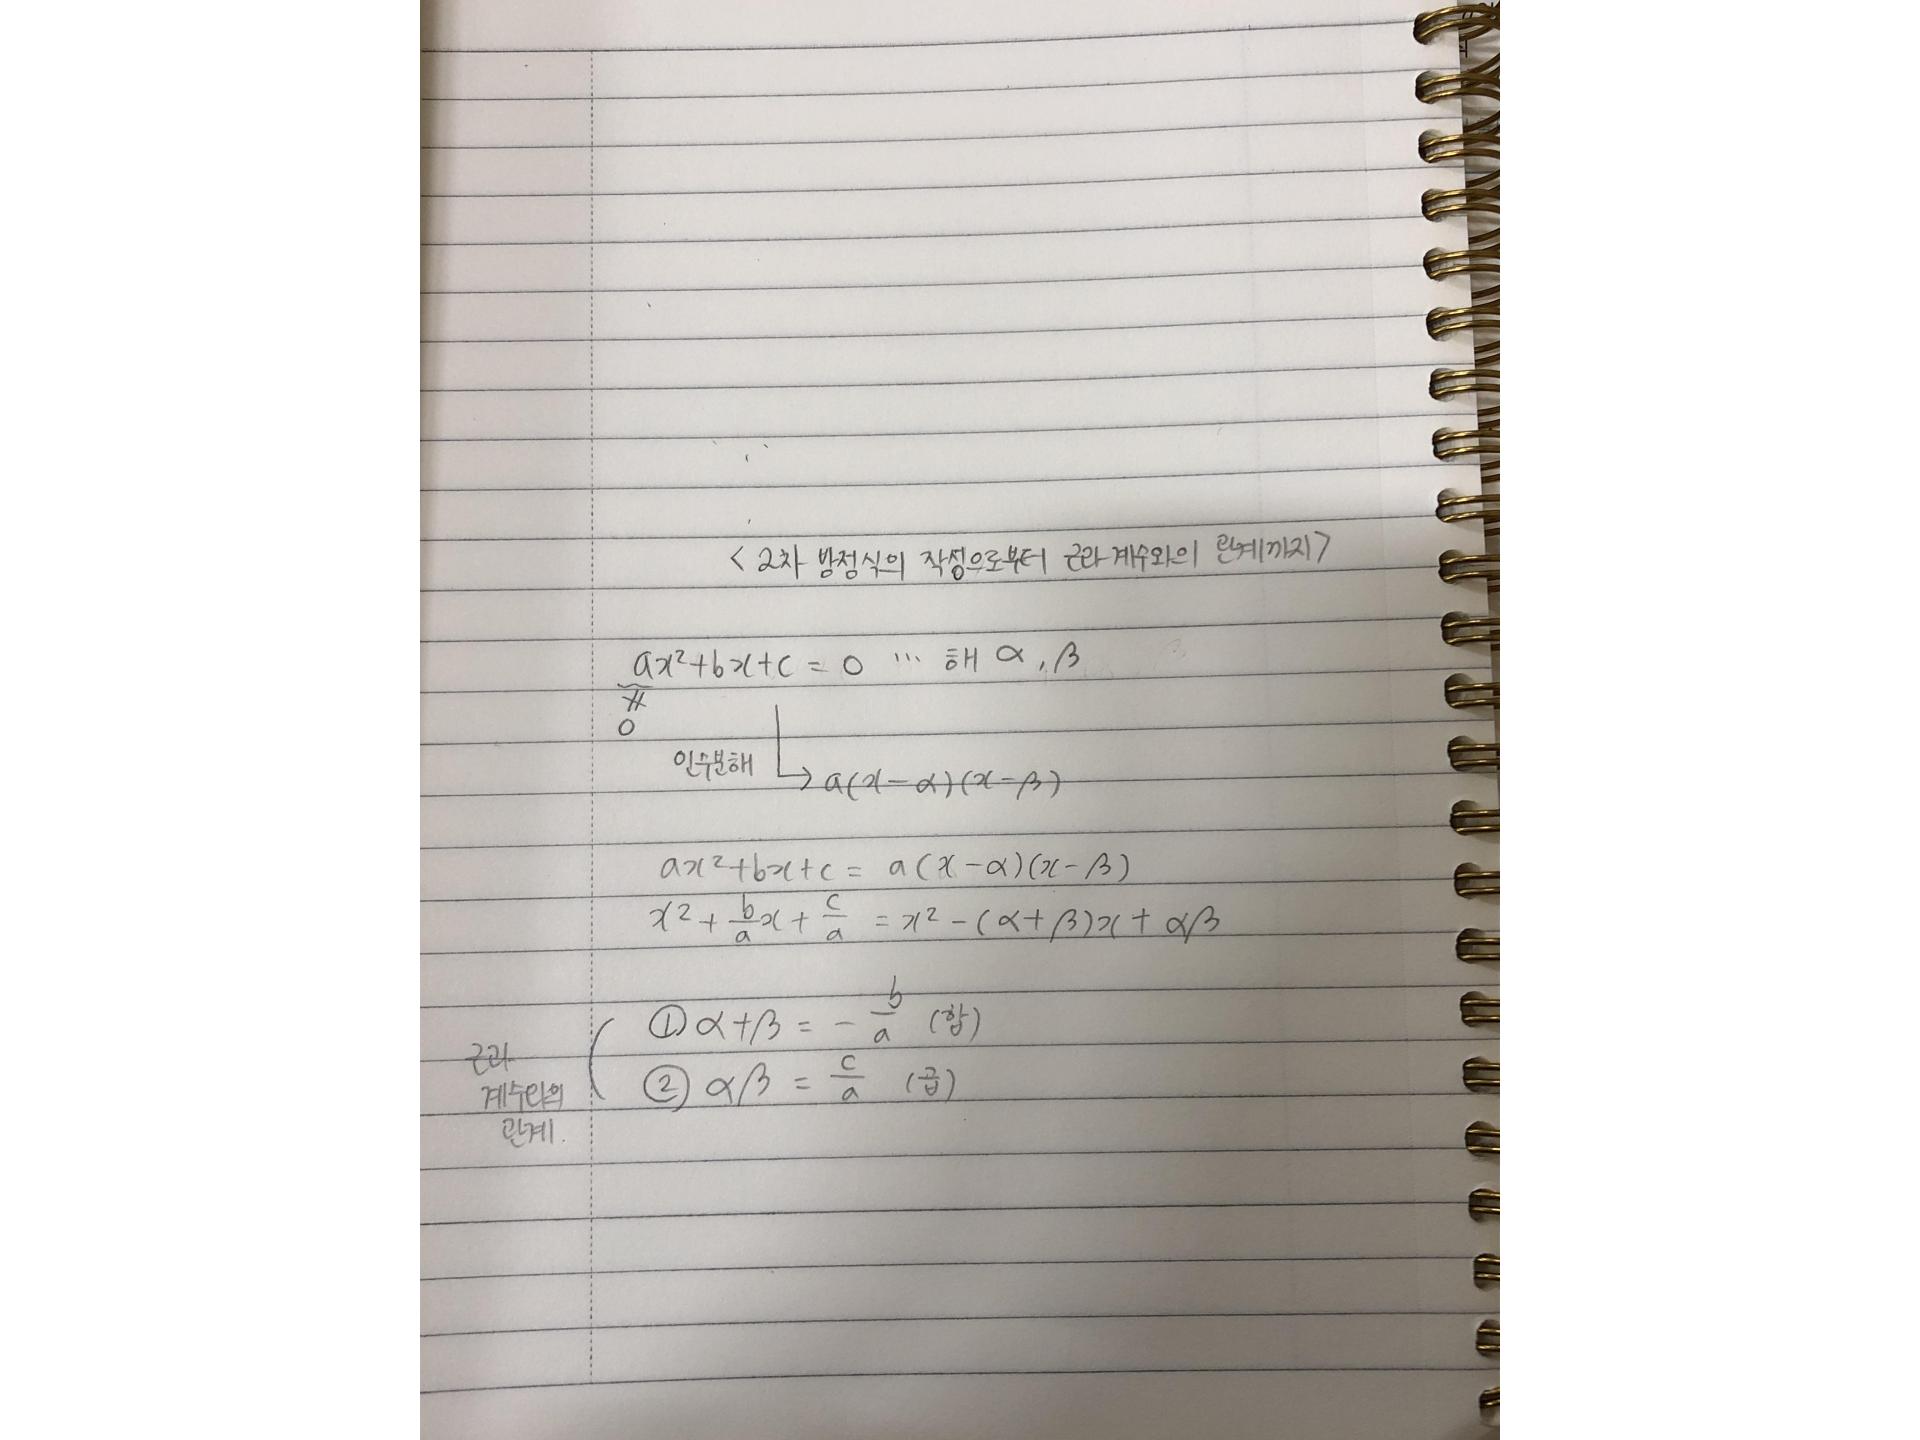 < 2차 방정식의 작성으로부터 근과 계수와의 관계까지 >
ax²+bx+c = 0 … 해 α, β
≠
0
인수분해
→ a(x-α)(x-β)
ax²+bx+c = a(x-α)(x-β)
x² + b/a x + c/a = x² - (α+β)x + αβ
① α+β = - b/a (합)
② αβ = c/a (곱)
근과
계수와의
관계.